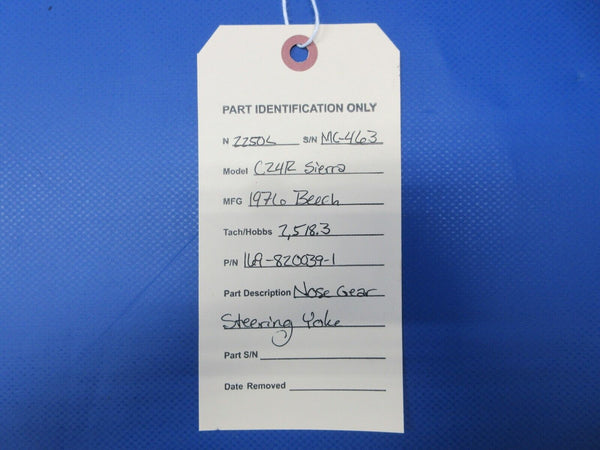 PART IDENTIFICATION ONLY
N 2250L S/N MC-463
Model C24R Sierra
MFG 1976 Beech
Tach/Hobbs 2,518.3
P/N 169-820039-1
Part Description Nose Gear
Steering Yoke
Part S/N
Date Removed